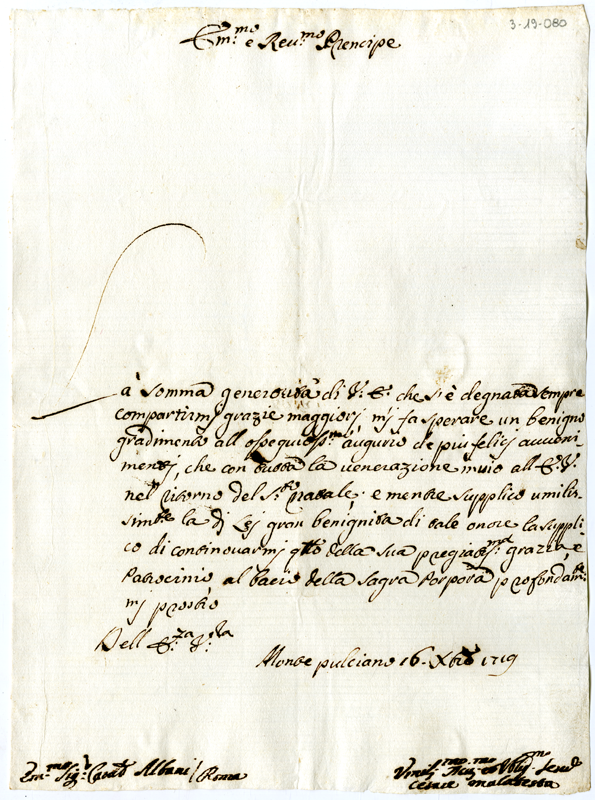 3-19-080
Em.mo e Reu.mo Prencipe
La somma generosità di V. E. che si è degnata sempre
compartirmi grazie maggiori mi fa sperare un benigno
gradimento all osseguioss.mo augurio de piu felici avveni
menti, che con tutta la venerazione inuio all E. V.
nel ritorno del S.to Natale; e mentre supplico umilis-
simte la di Lei gran benignità di tale onore la suppli
co di continouarmi qto della sua pregiatma grazia, e
Patrocinio, al bacio della Sagra Porpora profondamte
mi prostro
Dell E.za V.ra
Monte pulciano 16. Xbre 1719
Em.mo Sig.r Card Albani / Roma
Umilmo Deuomo et Obligmo Serure
Cesare Malatesta